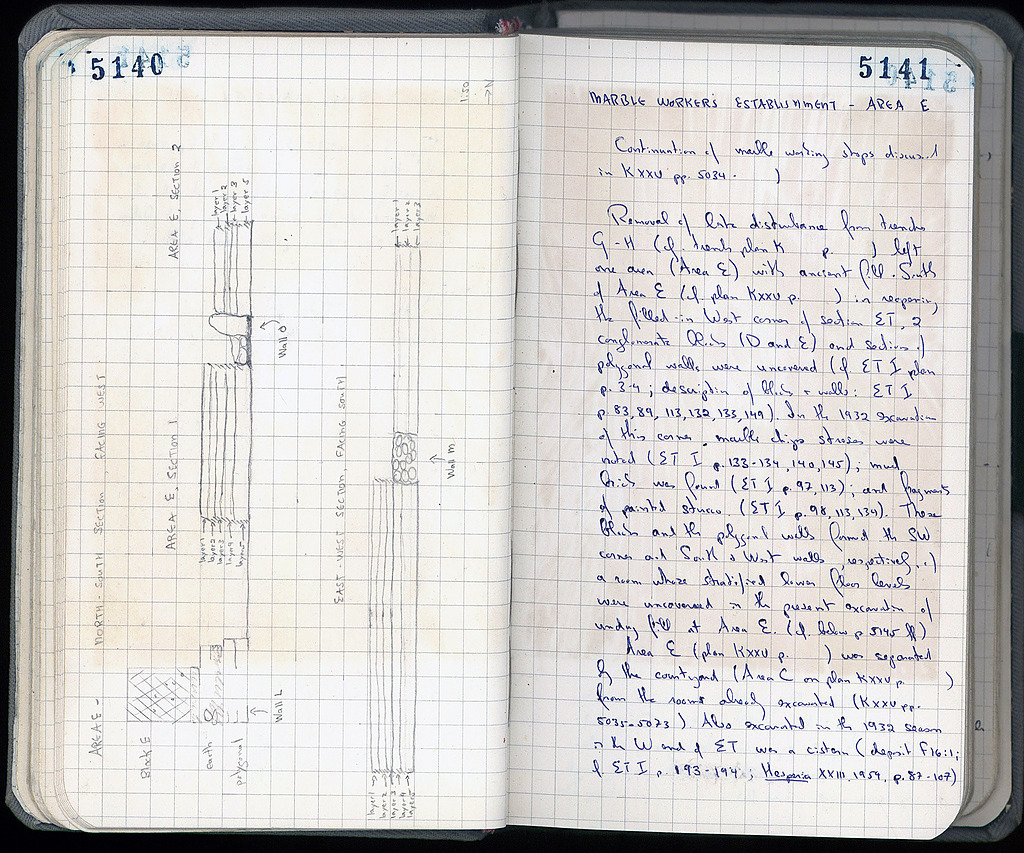 5140
AREA E - NORTH - SOUTH SECTION FACING WEST
AREA E, SECTION 1
AREA E, SECTION 2
Block E
Earth
polygonal
Wall L
layer 1
layer 2
layer 3
layer 4
layer 5
Wall O
layer 1
layer 2
layer 3
layer 5
EAST - WEST SECTION, FACING SOUTH
layer 1
layer 2
layer 3
layer 4
layer 5
Wall M
layer 1
layer 2
layer 3
1:50
→N
5141
MARBLE WORKERS ESTABLISHMENT - AREA E
Continuation of marble working shops discussed
in KXXV pp. 5034 - )
Removal of late disturbance from trench
G-H (cf. trench plan K p. ) left
one area (Area E) with ancient fill. South
of Area E (cf. plan KXXV p. ) in reopening
the filled-in West corner of section ET, 2
conglomerate blocks (D and E) and sections of
polygonal walls were uncovered (cf ET I plan
p. 3-4; description of blocks + walls: ET I
p. 83, 89, 113, 132, 133, 149). In the 1932 excavation
of this corner, marble chips stroses were
noted (ET I p. 133-134, 140, 145); mud
brick was found (ET I p. 97, 113); and fragments
of painted stucco (ET I p. 98, 113, 134). These
blocks and the polygonal walls formed the SW
corner and South + West walls, respectively, of
a room whose stratified lower floor levels
were uncovered in the present excavation of
undug fill at Area E. (cf. below p. 5145 ff)
Area E (plan KXXV p. ) was separated
by the courtyard (Area C on plan KXXV p. )
from the rooms already excavated (KXXV pp.
5035-5073) Also excavated in the 1932 season
in the W end of ET was a cistern (deposit F16:1;
cf. ET I p. 193-194; Hesperia XXIII, 1954, p. 87-107)